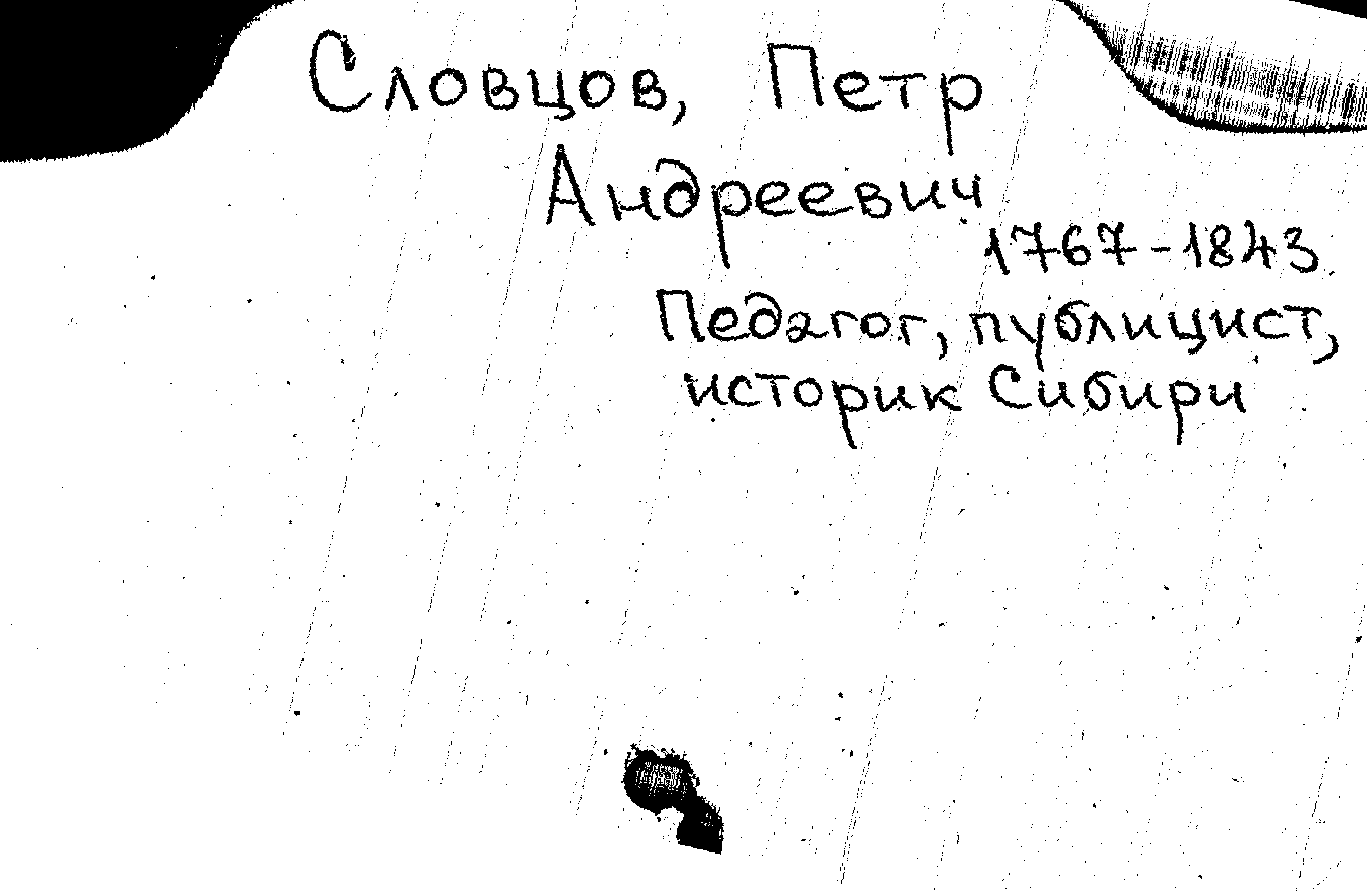 Словцов, Петр
Андреевич
1767-1843
Педагог, публицист,
историк Сибири